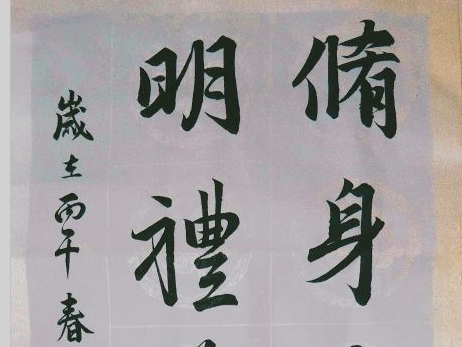 脩身
明禮
歲在丙午春